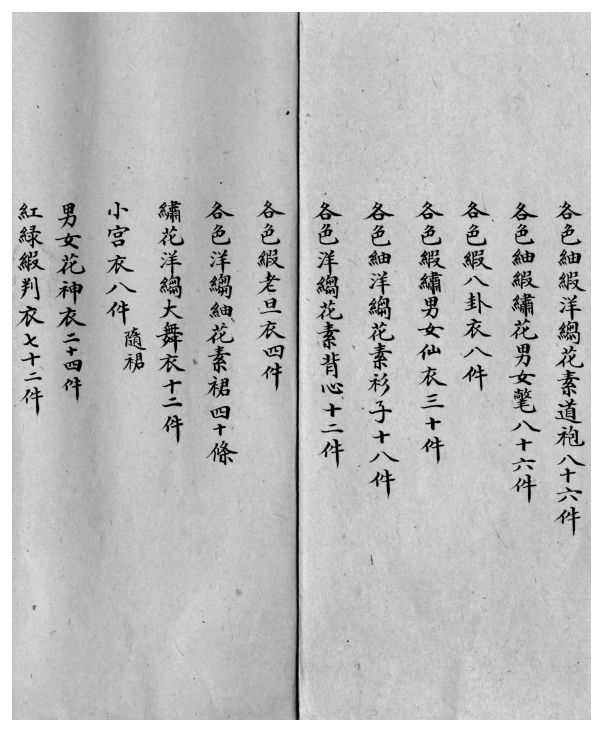 各色紬緞洋縐花素道袍八十六件
各色紬緞繡花男女氅八十六件
各色緞八卦衣八件
各色緞繡男女仙衣三十件
各色紬洋縐花素衫子十八件
各色洋縐花素背心十二件
各色緞老旦衣四件
各色洋縐紬花素裙四十條
繡花洋縐大舞衣十二件
小宮衣八件 隨裙
男女花神衣二十四件
紅綠緞判衣七十二件